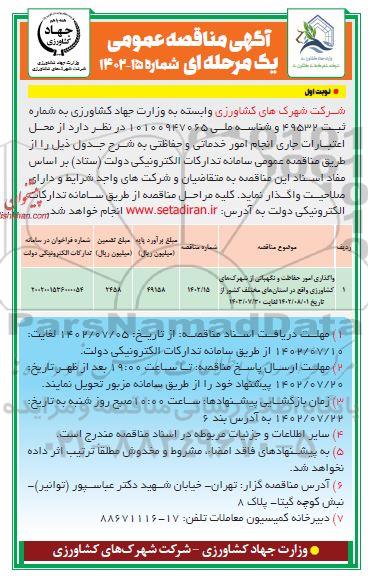 آگهی مناقصه عمومی
یک مرحله ای شماره ۱۵-۱۴۰۲
جهاد کشاورزی
وزارت جهاد کشاورزی
شرکت شهرک های کشاورزی
نوبت اول
شرکت شهرک های کشاورزی وابسته به وزارت جهاد کشاورزی به شماره
ثبت ۴۹۵۳۲ و شناسه ملی ۱۰۱۰۰۹۴۷۰۶۵ در نظر دارد از محل
اعتبارات جاری انجام امور خدماتی و حفاظتی به شرح جدول ذیل را از
طریق مناقصه عمومی سامانه تدارکات الکترونیکی دولت (ستاد) بر اساس
مفاد اسناد این مناقصه به متقاضیان و شرکت های واجد شرایط و دارای
صلاحیت واگذار نماید. کلیه مراحل مناقصه از طریق سامانه تدارکات
الکترونیکی دولت به آدرس: www.setadiran.ir انجام خواهد شد.
ردیف موضوع مناقصه شماره مناقصه مبلغ برآورد پایه (میلیون ریال) مبلغ تضمین (میلیون ریال) شماره فراخوان در سامانه تدارکات الکترونیکی دولت
۱ واگذاری امور حفاظت و نگهبانی از شهرک‌های کشاورزی واقع در استان‌های مختلف کشور از تاریخ ۱۴۰۲/۰۸/۰۱ لغایت ۱۴۰۳/۰۷/۳۰ ۱۴۰۲/۱۵ ۴۹۱۵۸ ۲۴۵۸ ۲۰۰۲۰۰۱۵۳۶۰۰۰۰۵۴
۱) مهلت دریافت اسناد مناقصه: از تاریخ: ۱۴۰۲/۰۷/۰۵ لغایت:
۱۴۰۲/۰۷/۱۰ از طریق سامانه تدارکات الکترونیکی دولت.
۲) مهلت ارسال پاسخ مناقصه: تا ساعت ۱۹:۰۰ بعد از ظهر تاریخ:
۱۴۰۲/۰۷/۲۰ پیشنهاد خود را از طریق سامانه مزبور تحویل نمایند.
۳) زمان بازگشایی پیشنهادها: ساعت ۱۰:۰۰ صبح روز شنبه به تاریخ:
۱۴۰۲/۰۷/۲۲ به آدرس بند ۶
۴) سایر اطلاعات و جزئیات مربوطه در اسناد مناقصه مندرج است.
۵) به پیشنهادهای فاقد امضاء، مشروط و مخدوش مطلقاً ترتیب اثر داده
نخواهد شد.
۶) آدرس مناقصه گزار: تهران- خیابان شهید دکتر عباسپور (توانیر)-
نبش کوچه گیتا- پلاک ۸
۷) دبیرخانه کمیسیون معاملات تلفن: ۱۷-۸۸۶۷۱۱۱۶
وزارت جهاد کشاورزی - شرکت شهرک‌های کشاورزی